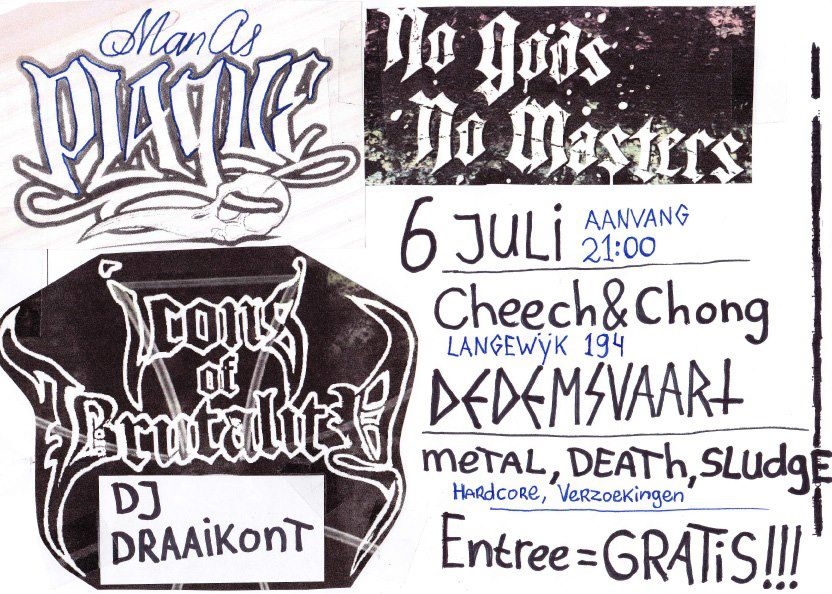 Man As
PLAQUE
No Gods
No Masters
6 JULI
AANVANG
21:00
Cheech&Chong
LANGEWÿK 194
DEDEMSVAART
meTAL, DEATh, SLudgE
HARdcoRE, VeRzoekingen
Entree = GRATiS!!!
Icons
of
Brutality
DJ
DRAAiKonT